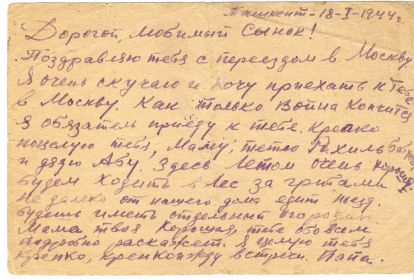 Ташкент - 18-I-1944 г.
Дорогой, Любимый Сынок!
Поздравляю тебя с переездом в Москву
Я очень скучаю и хочу приехать к тебе
в Москву. Как только Война Кончится
Я обязательн приеду к тебе. Крепко
поцелую тебя, Маму, тетю
и дядю Абу. Здесь Летом очень хорошо
будем ходить в Лес за грибами
Не далеко от нашего дома едит
будешь иметь отдельный огородик
Мама твоя Хорошая, тебе обо всем
подробно раскажет. Я целую тебя
крепко, крепко жду встречи. Папа.